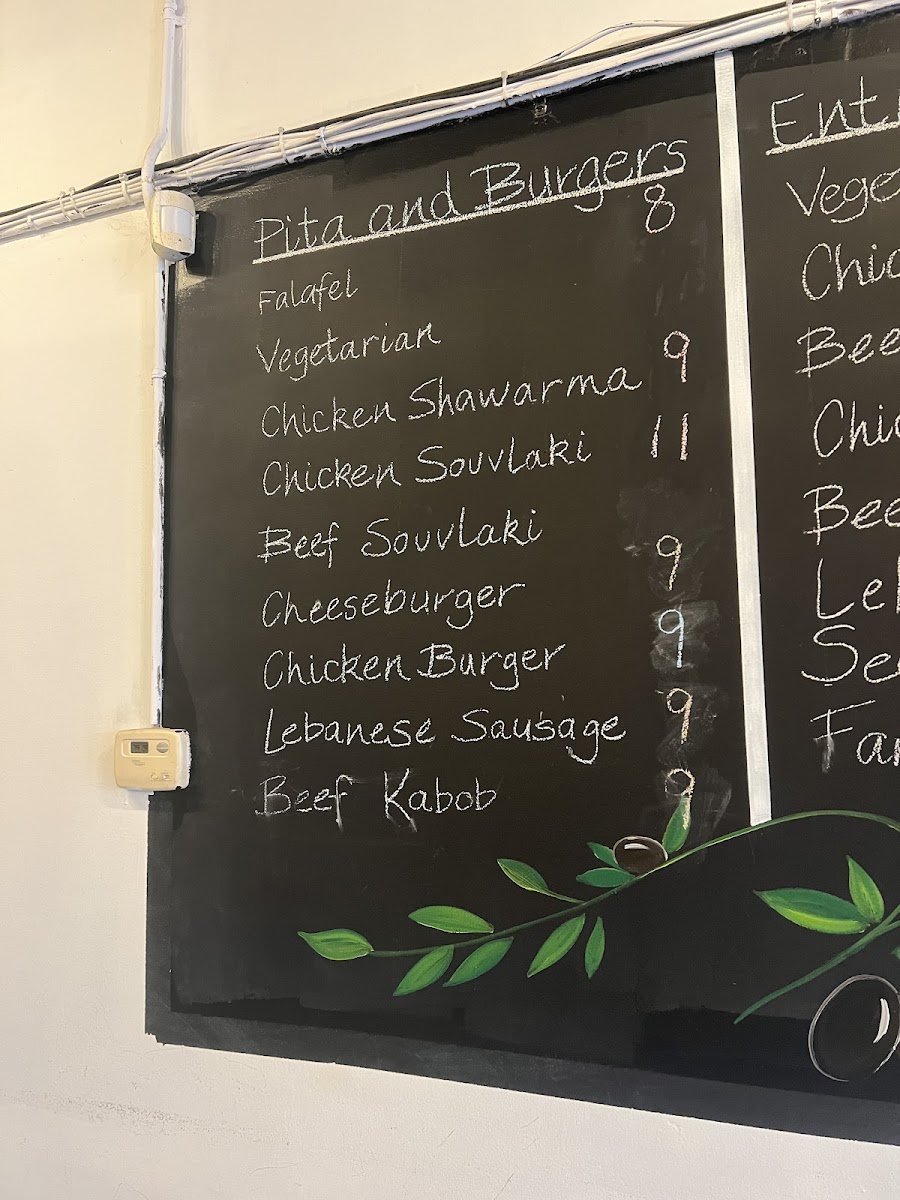 Pita and Burgers
8
Falafel
Vegetarian
Chicken Shawarma 9
Chicken Souvlaki 11
Beef Souvlaki
Cheeseburger 9
Chicken Burger 9
Lebanese Sausage 9
Beef Kabob 9
Ent
Vege
Chic
Bee
Chic
Bee
Leb
Se
Far